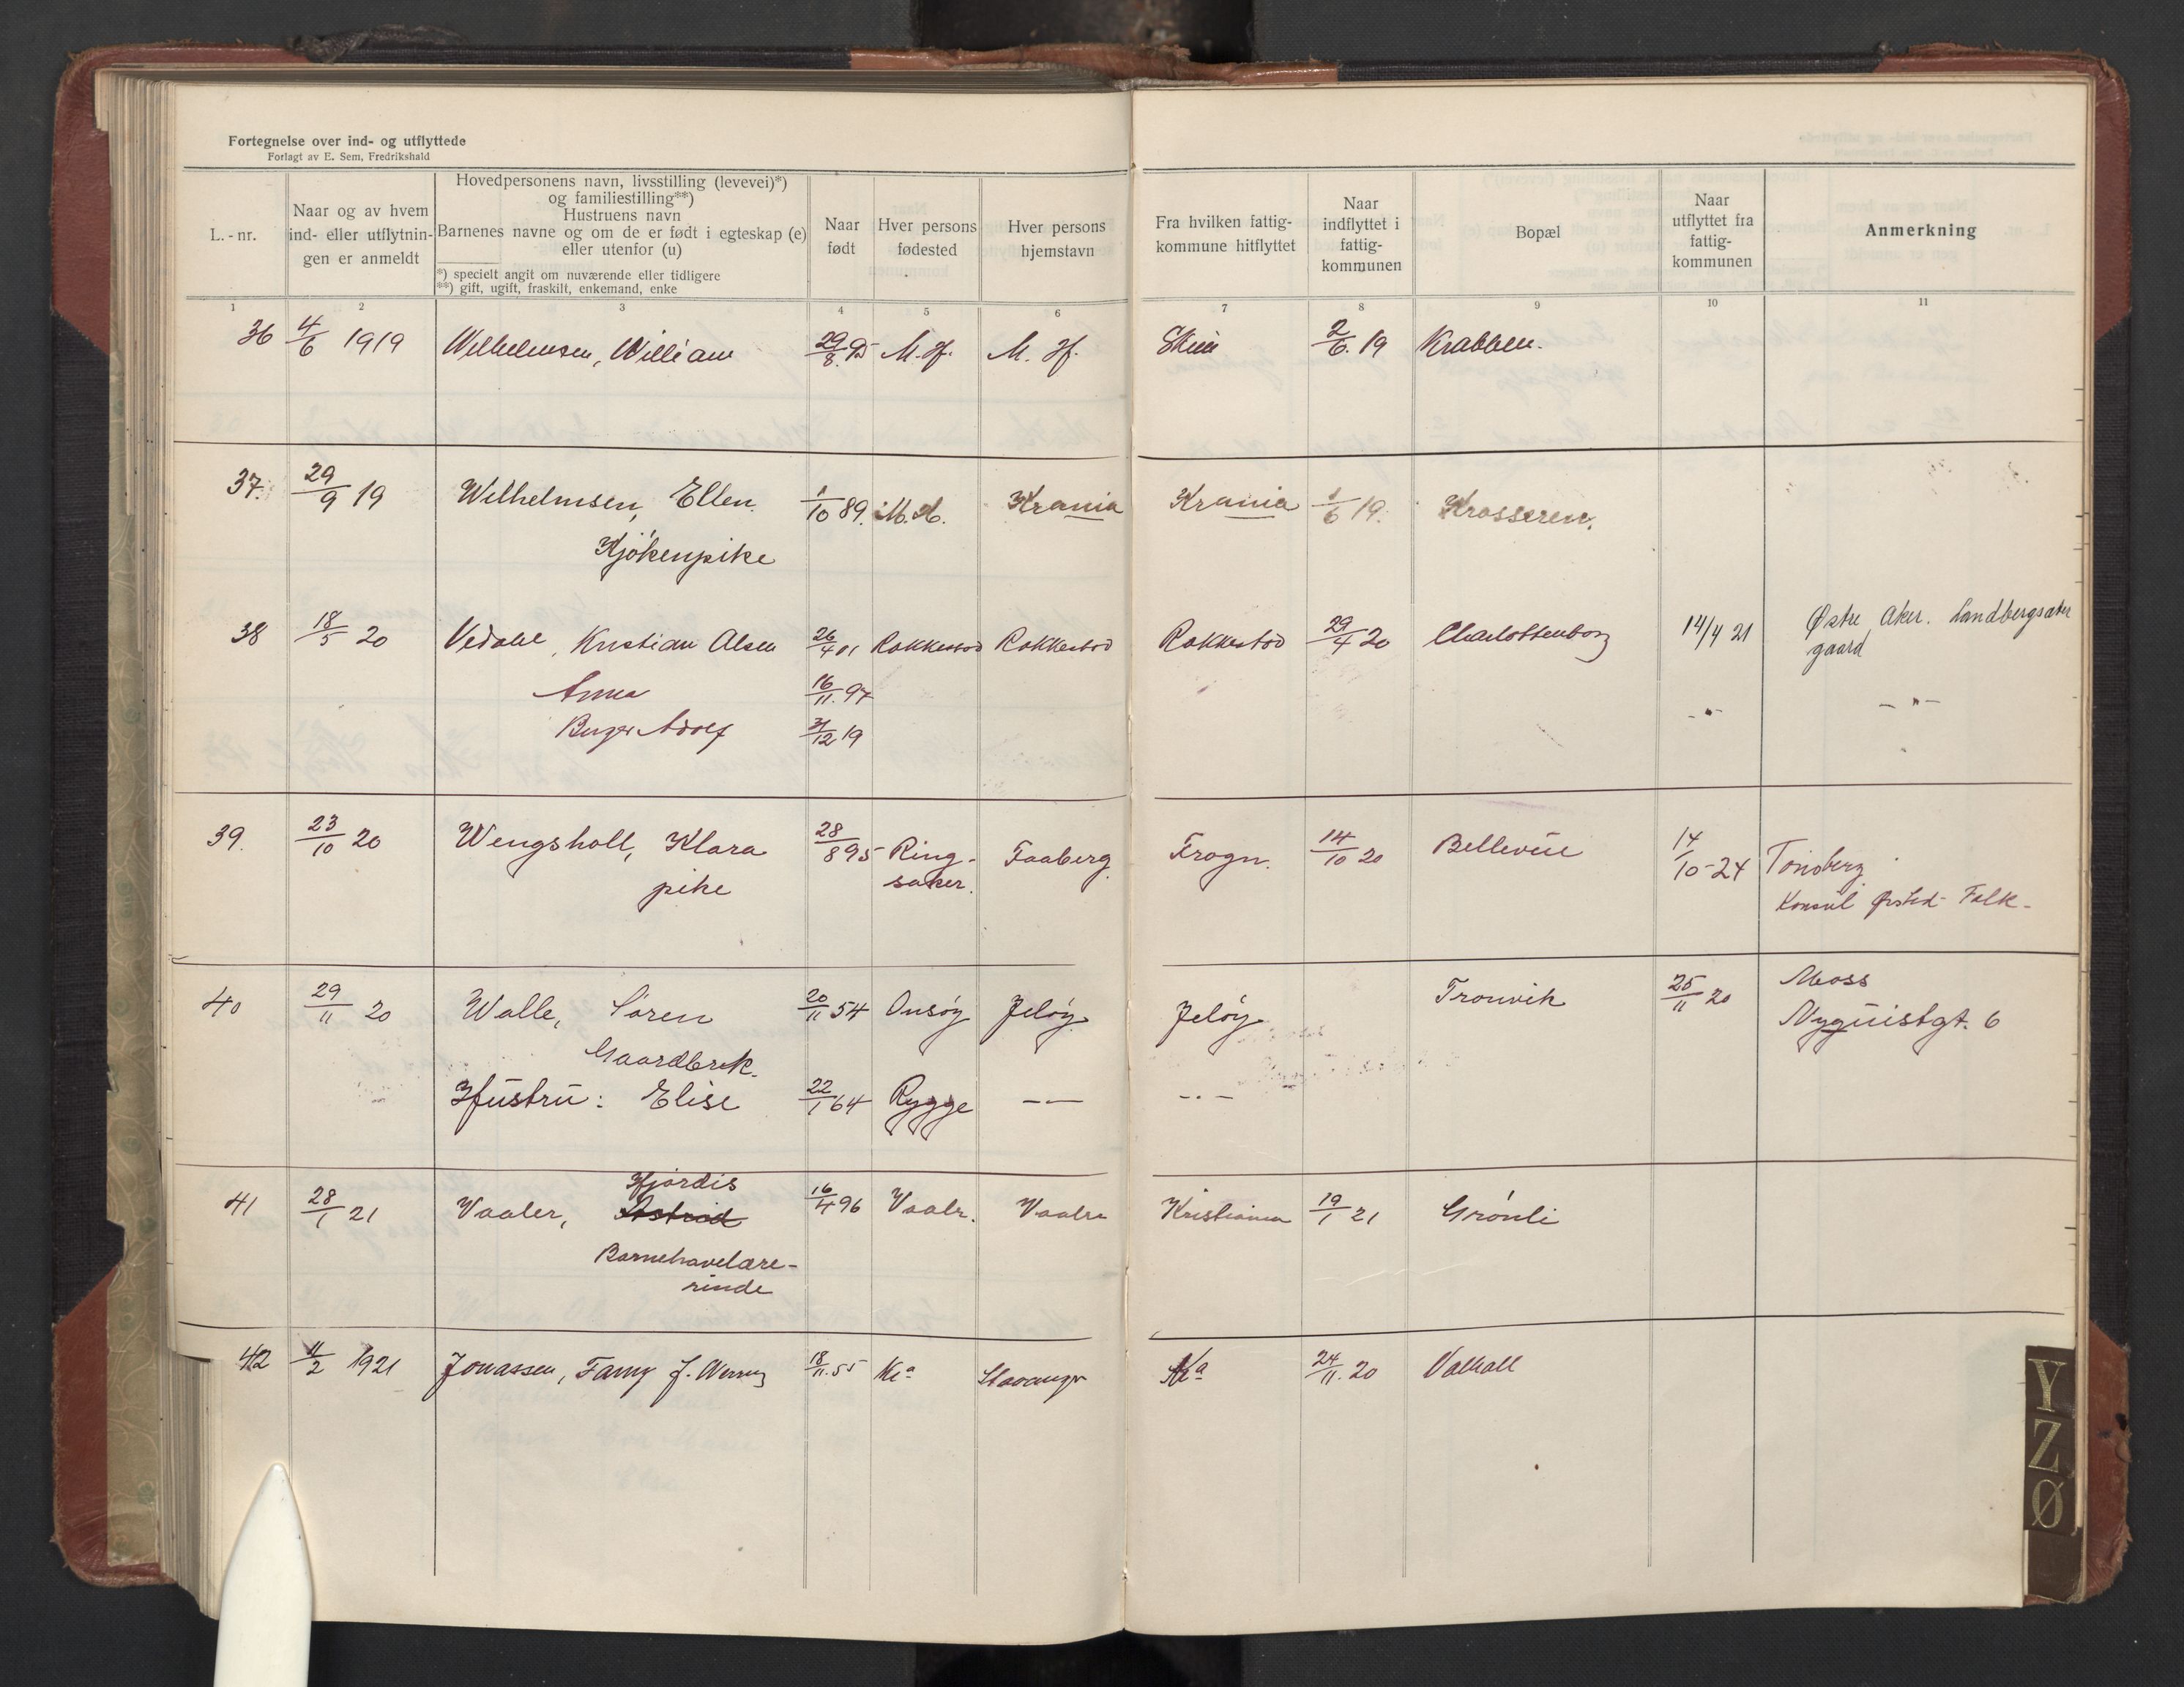 Fortegnelse over ind- og utflyttede
Forlagt av E. Sem, Fredrikshald
L.-nr.
Naar og av hvem
ind- eller utflytnin-
gen er anmeldt
Hovedpersonens navn, livsstilling (levevei)*)
og familiestilling**)
Hustruens navn
Barnenes navne og om de er født i egteskap (e)
eller utenfor (u)
*) specielt angit om nuværende eller tidligere
**) gift, ugift, fraskilt, enkemand, enke
Naar
født
Hver persons
fødested
Hver persons
hjemstavn
Fra hvilken fattig-
kommune hitflyttet
Naar
indflyttet i
fattig-
kommunen
Bopæl
Naar
utflyttet fra
fattig-
kommunen
Anmerkning
1 2 3 4 5 6 7 8 9 10 11
36 4/6 1919 Wilhelmsen, William 29/8 95 M. H. M. H. Skien 2/6. 19 Krabben.
37. 29/9 19 Wilhelmsen, Ellen 1/10 89. M. H. Krania Krania 1/6 19. Krosseren.
Kjökenpike
38 18/5 20 Vedahl, Kristian Olsen 26/4 01 Rokkestad Rokkestad Rokkestad 29/4 20 Charlottenborg 14/4 21 Østre Aker. Landbergsæter
gaard
Anna 16/11. 97 -"- -"-
Birger Adolf 31/12 19
39. 23/10 20 Wengsholl, Klara 28/8 95 Ring- Faaberg. Frogn. 14/10 20 Bellevüe 14/10-24 Tönsberg
pike saker. Konsul Ørsted Falk-
40 29/11 20 Walle, Sören 20/11 54 Onsöy Jelöy Jelöy Tronvik 25/11 20 Moss
Gaardbrk. Nyquistgt. 6
Hüstrü: Elise 22/1 64 Rygge -"- -"-
Hjördis
41 28/1 21 Vaaler, Astrid 16/4 96 Vaaler. Vaaler Kristiania 19/1 21 Grönli
Barnehavelære-
rinde
42 11/2 1921 Jonassen, Fanny J. 18/11. 55 Kr.a Stavanger Kr.a 24/11. 20 Valhall
Y
Z
Ø